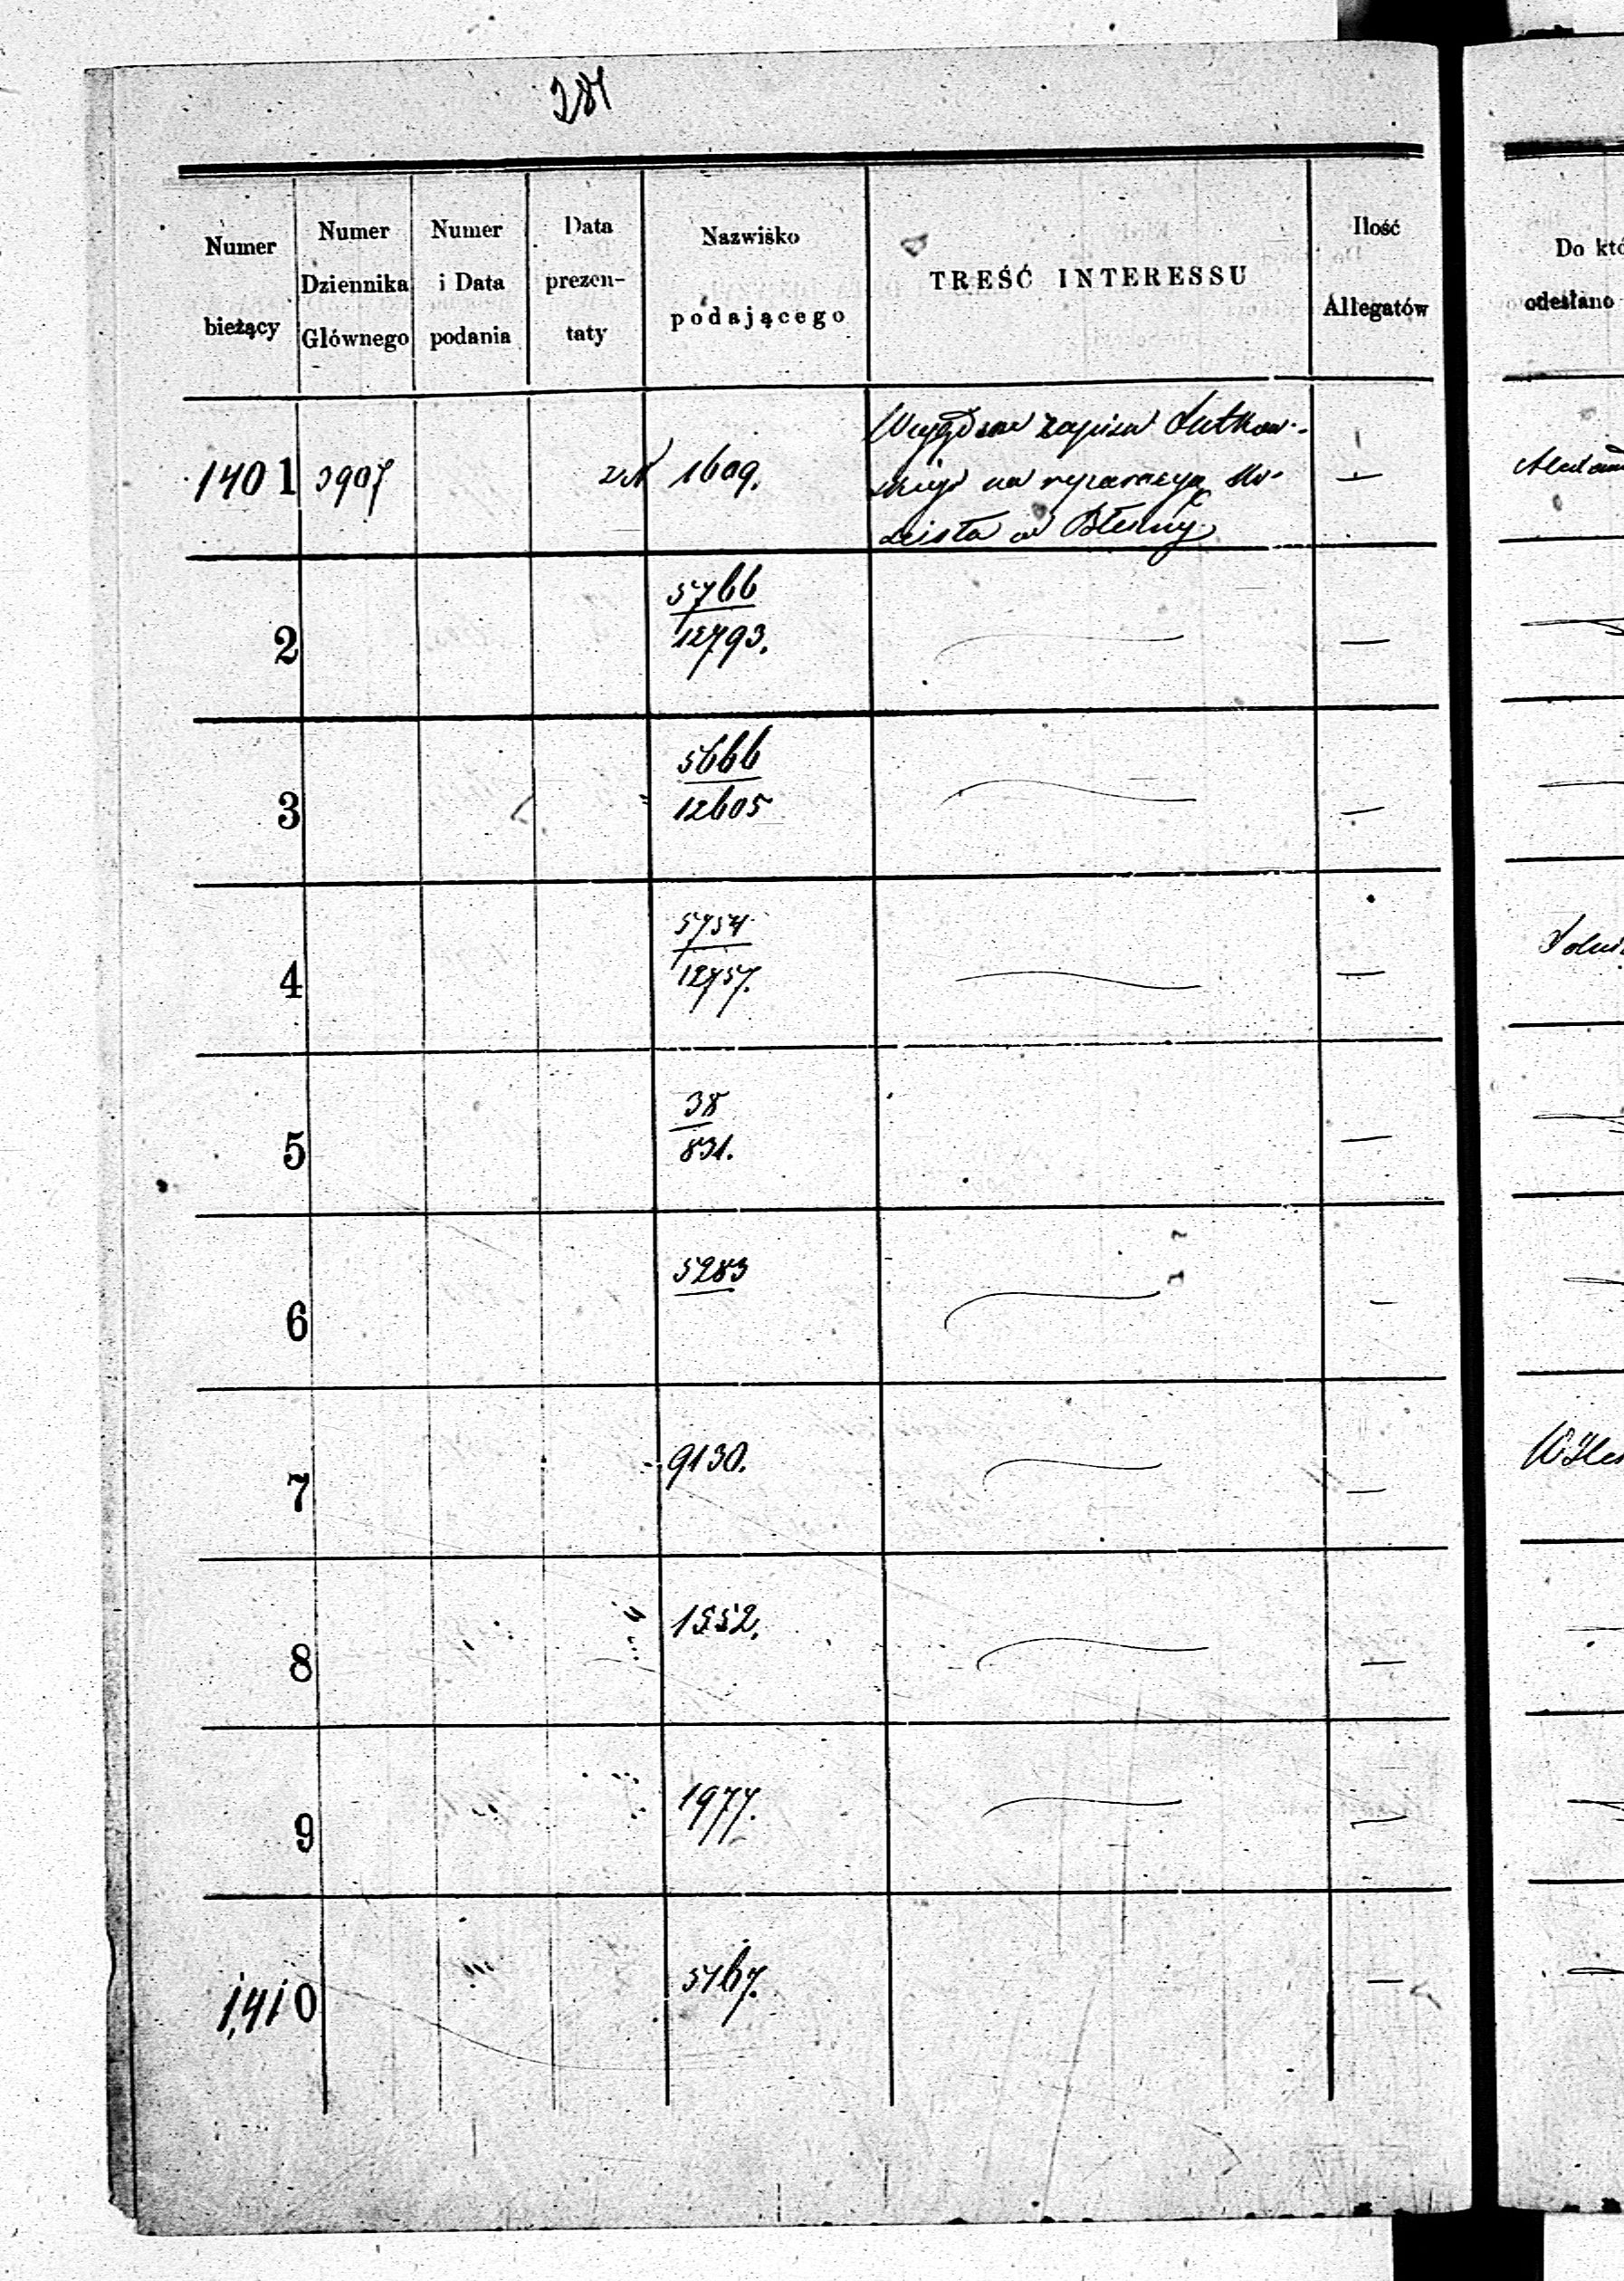 Numer bieżący
Numer Dziennika Głównego
Numer i Data podania
Data prezentaty
Nazwisko podającego
TREŚĆ INTERESSU
Ilość Allegatów
Do któ
odesłano
1401 3907 1609. zapisu Lutkow-
na reparacyą ko-
ścioła w
2 5766
12793.
3 5666
12605
4 5754
12757.
5 38
831.
6 5283
7 9130.
8 1552.
9 1977.
1,410 5167.